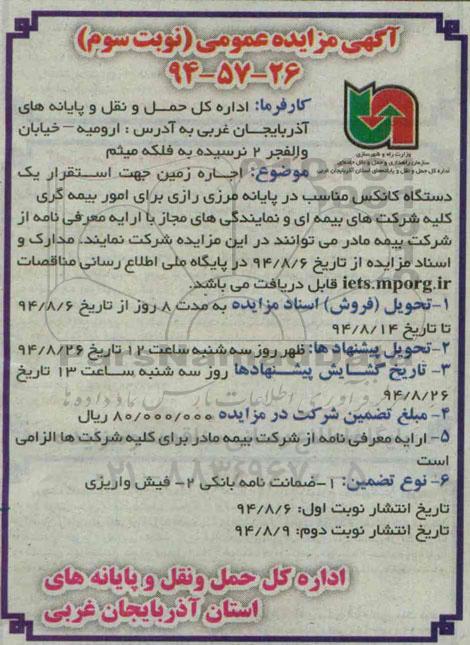 آگهی مزایده عمومی (نوبت سوم)
۲۶-۵۷-۹۴
کارفرما: اداره کل حمل و نقل و پایانه های
آذربایجان غربی به آدرس : ارومیه – خیابان
والفجر ۲ نرسیده به فلکه میثم
وزارت راه و شهرسازی
سازمان راهداری و حمل و نقل جاده‌ای
اداره کل حمل و نقل و پایانه‌های استان آذربایجان غربی
موضوع: اجاره زمین جهت استقرار یک
دستگاه کانکس مناسب در پایانه مرزی رازی برای امور بیمه گری
کلیه شرکت های بیمه ای و نمایندگی های مجاز با ارایه معرفی نامه از
شرکت بیمه مادر می توانند در این مزایده شرکت نمایند. مدارک و
اسناد مزایده از تاریخ ۹۴/۸/۶ در پایگاه ملی اطلاع رسانی مناقصات
iets.mporg.ir قابل دریافت می باشد.
۱-تحویل (فروش) اسناد مزایده به مدت ۸ روز از تاریخ ۹۴/۸/۶
تا تاریخ ۹۴/۸/۱۴
۲-تحویل پیشنهاد ها: ظهر روز سه شنبه ساعت ۱۲ تاریخ ۹۴/۸/۲۶
۳- تاریخ گشایش پیشنهادها روز سه شنبه ساعت ۱۳ تاریخ
۹۴/۸/۲۶
۴- مبلغ تضمین شرکت در مزایده ۸۰/۰۰۰/۰۰۰ ریال
۵- ارایه معرفی نامه از شرکت بیمه مادر برای کلیه شرکت ها الزامی
است
۶- نوع تضمین: ۱-ضمانت نامه بانکی ۲- فیش واریزی
تاریخ انتشار نوبت اول: ۹۴/۸/۶
تاریخ انتشار نوبت دوم: ۹۴/۸/۹
اداره کل حمل ونقل و پایانه های
استان آذربایجان غربی